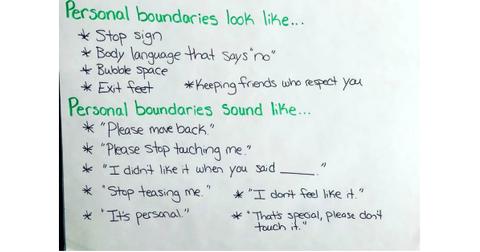 Personal boundaries look like...
* Stop sign
* Body language that says "no"
* Bubble space
* Exit feet * Keeping friends who respect you
Personal boundaries sound like...
* "Please move back."
* "Please stop touching me."
* "I didn't like it when you said ____."
* "Stop teasing me." * "I don't feel like it."
* "It's personal." * "That's special, please don't
touch it."